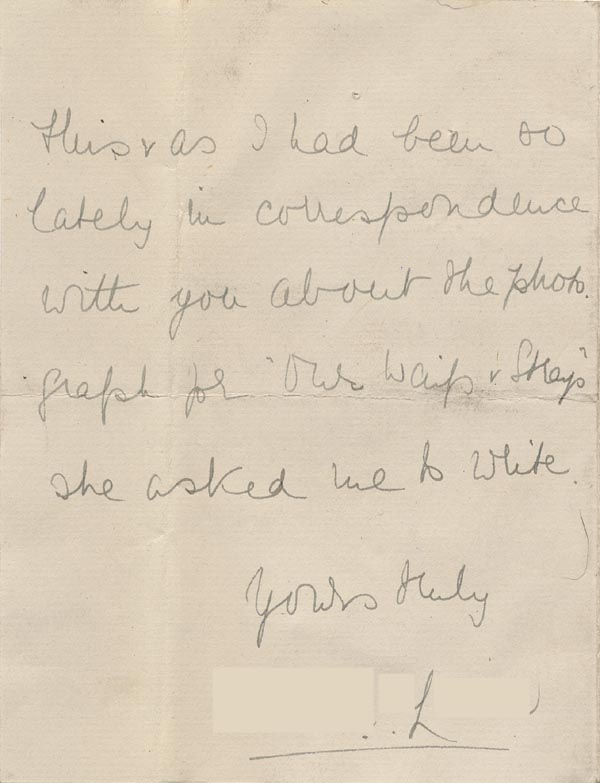 this & as I had been so
lately in correspondence
with you about the photo.
graph for "Our Waifs & Strays"
she asked me to write.
Yours truly
L